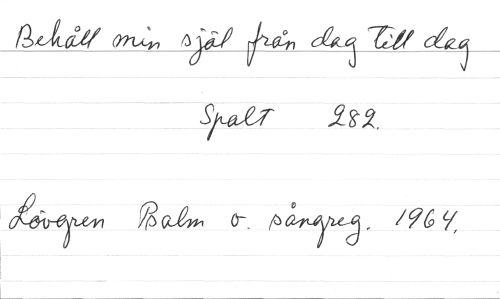 Behåll min själ från dag till dag
Spalt 282.
Lövgren Psalm o. sångreg. 1964.